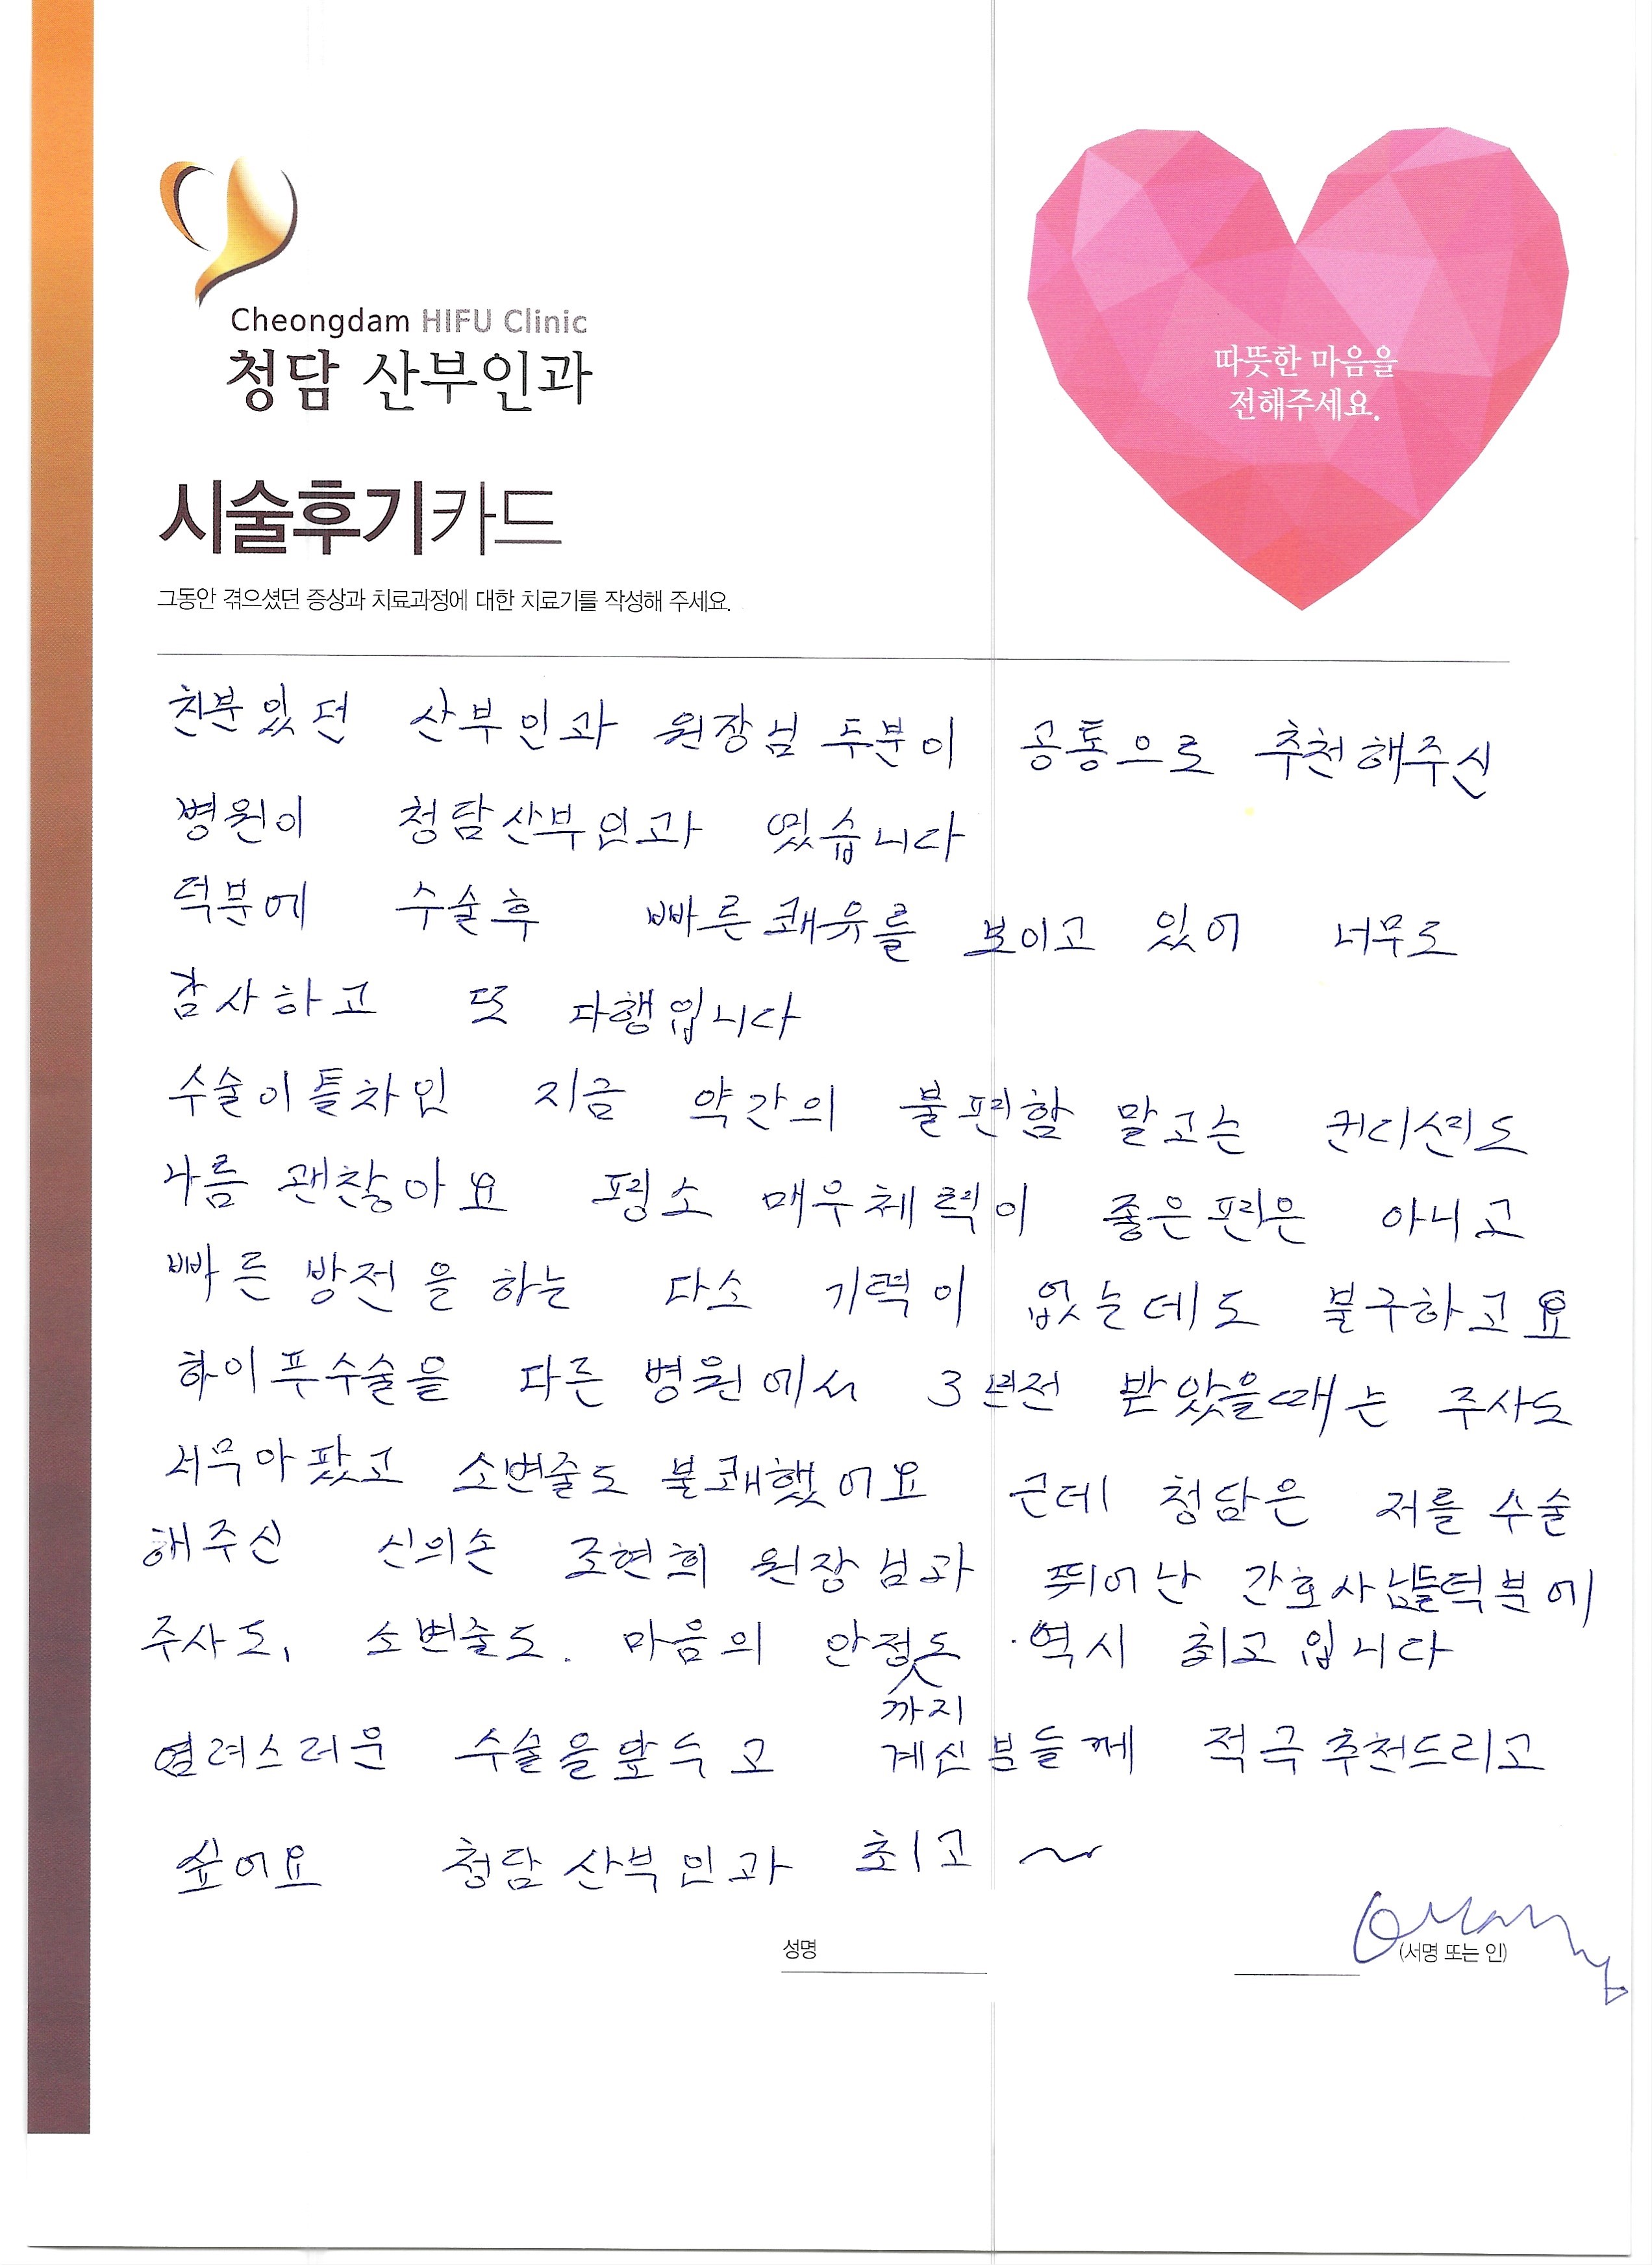 Cheongdam HIFU Clinic
청담 산부인과
따뜻한 마음을
전해주세요.
시술후기카드
그동안 겪으셨던 증상과 치료과정에 대한 치료기를 작성해 주세요.
친분있던 산부인과 원장님 두분이 공통으로 추천해주신
병원이 청담산부인과 였습니다
덕분에 수술후 빠른쾌유를 보이고 있어 너무도
감사하고 또 다행입니다
수술이틀차인 지금 약간의 불편함 말고는 컨디션도
나름 괜찮아요 평소 매우체력이 좋은편은 아니고
빠른 방전을 하는 다소 기력이 없는데도 불구하고요
하이푸수술을 다른 병원에서 3년전 받았을때는 주사도
너무아팠고 소변줄도 불쾌했어요 근데 청담은 저를 수술
해주신 신의손 조현희 원장님과 뛰어난 간호사님들덕분에
주사도, 소변줄도. 마음의 안정도 역시 최고입니다
까지
염려스러운 수술을앞두고 계신분들께 적극추천드리고
싶어요 청담산부인과 최고~
성명
(서명 또는 인)